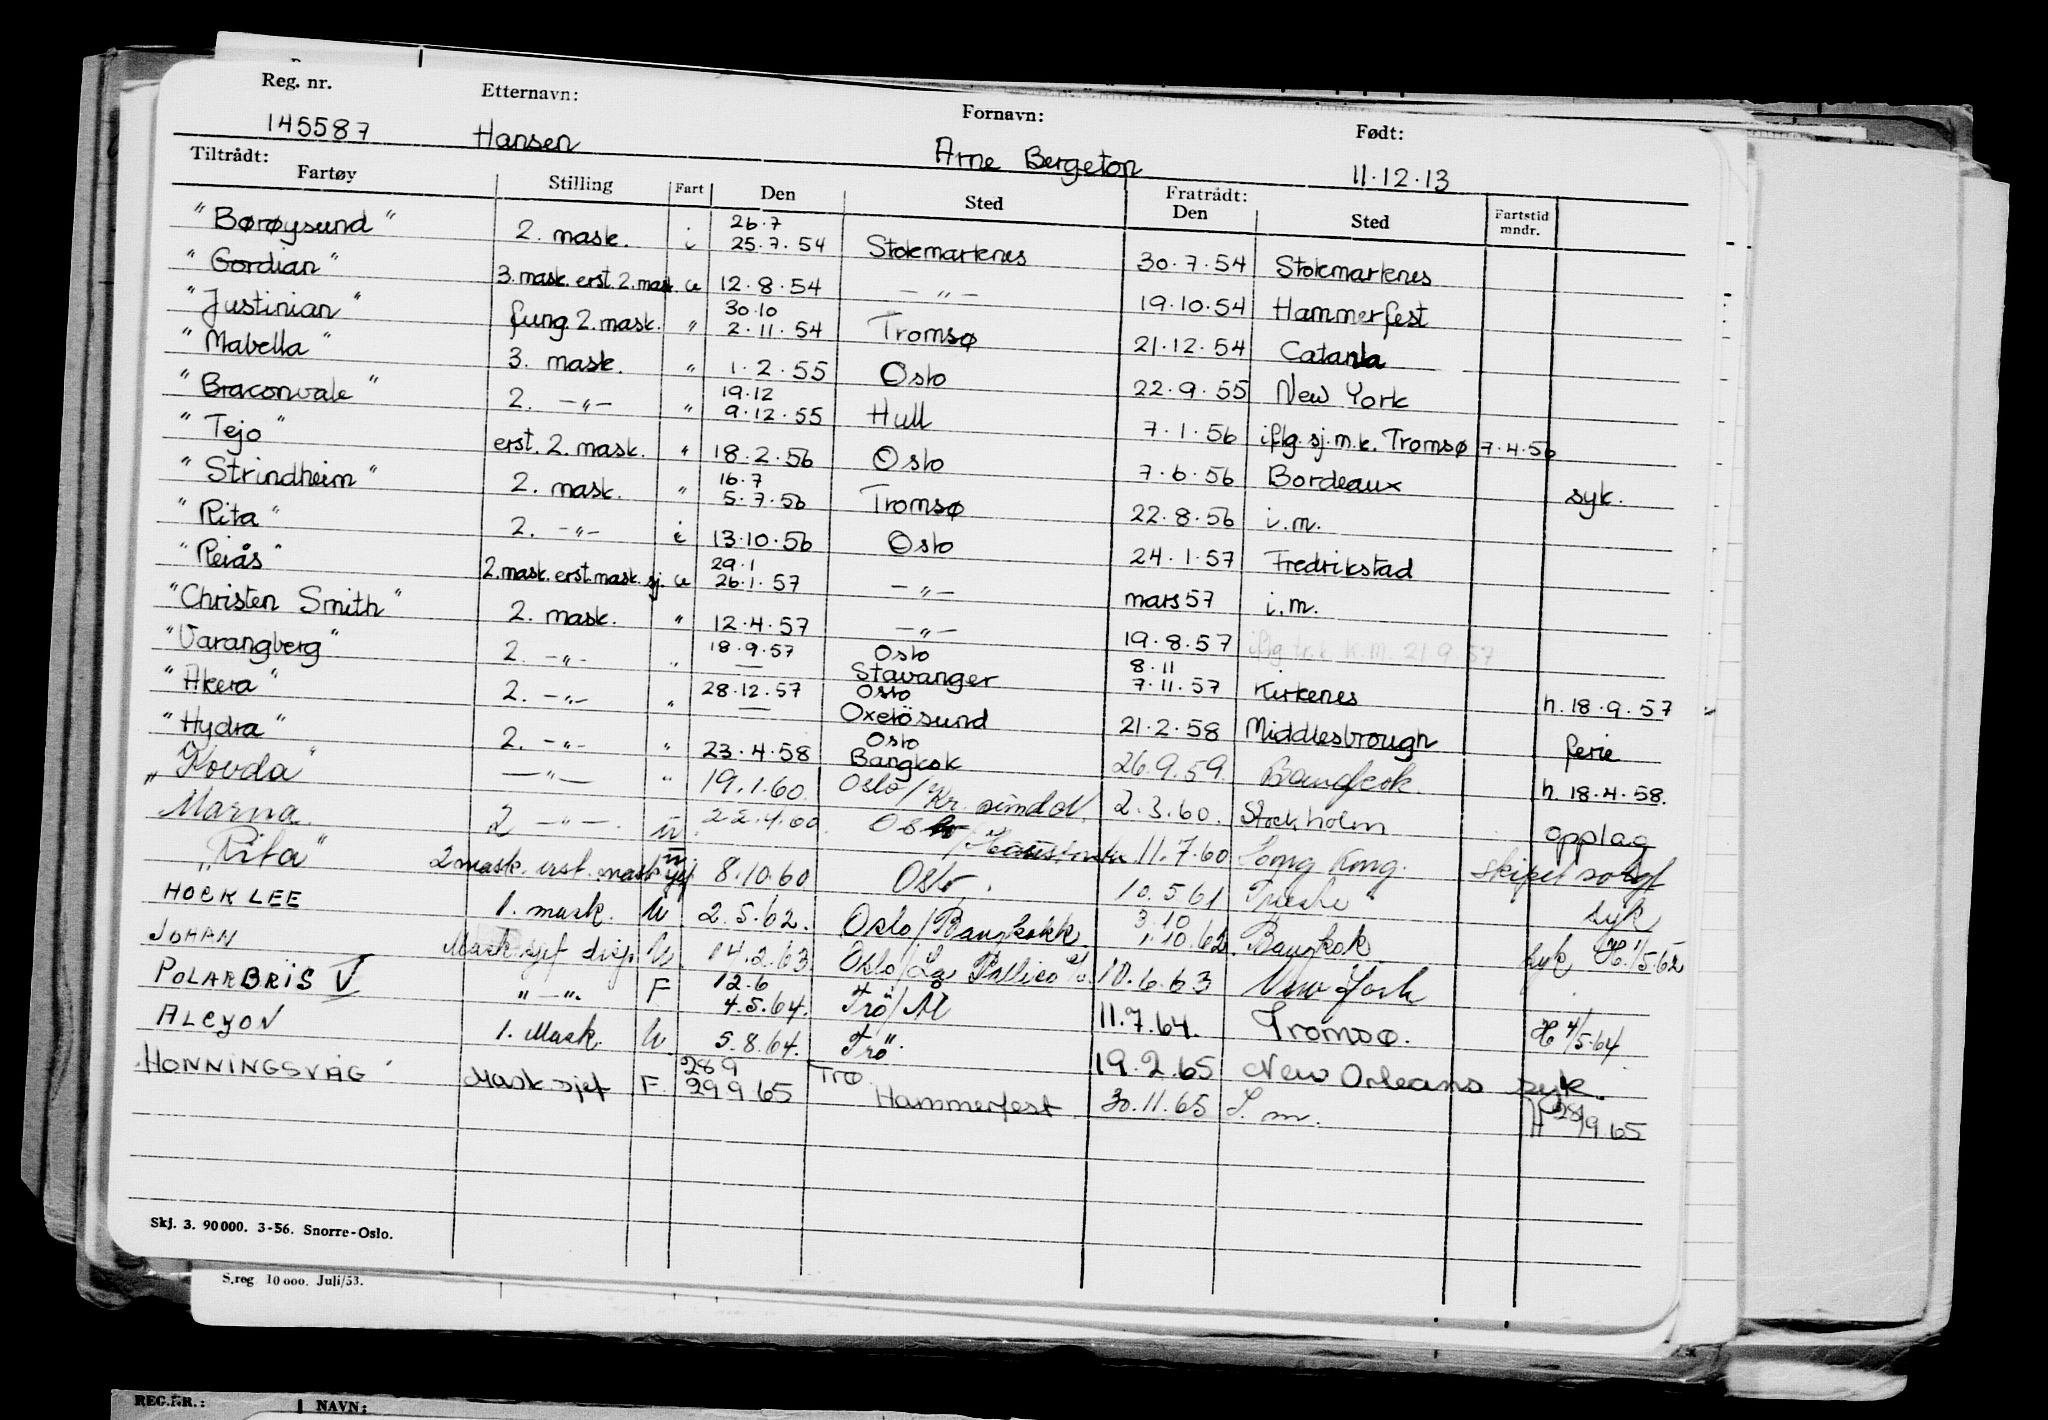 Reg. nr. Etternavn: Fornavn: Født:
145587 Hansen Arne Bergeton 11.12.13
Tiltrådt: Fratrådt:
Fartøy Stilling Fart Den Sted Den Sted Fartstid mndr.
"Børøysund" 2. mask. i 26.7 25.7.54 Stokmarknes 30.7.54 Stokmarknes
"Gordian" 3. mask. erst. 2. mask. u 12.8.54 — " — 19.10.54 Hammerfest
"Justinian" fung. 2. mask. " 30.10 2.11.54 Tromsø 21.12.54 Catania
"Mabella" 3. mask. " 1.2.55 Oslo 22.9.55 New York
"Braconvale" 2. — " — " 19.12 9.12.55 Hull 7.1.56 iflg. sj.m.k. Tromsø 7.4.56
"Tejo" erst. 2. mask. " 18.2.56 Oslo 7.6.56 Bordeaux syk.
"Strindheim" 2. mask. " 16.7 5.7.56 Tromsø 22.8.56 i.m.
"Rita" 2. — " — i 13.10.56 Oslo 24.1.57 Fredrikstad
"Reiås" 2. mask. erst. mask. sj. u 29.1 26.1.57 — " — mars 57 i.m.
"Christen Smith" 2. mask. " 12.4.57 — " — 19.8.57 iflg tr.k. K.M. 21 9 57
"Varangberg" 2. — " — " 18.9.57 — Oslo Stavanger 8.11 7.11.57 Kirkenes h. 18.9.57
"Akera" 2. — " — " 28.12.57 — Oslo Oxelösund 21.2.58 Middlesbrough ferie
"Hydra" 2. — " — " 23.4.58 Oslo Bangkok 26.9.59. Bangkok. h. 18.4.58.
"Kovda" — " — " 19.1.60. Oslo/Kr. sund N. 2.3.60. Stockholm opplag
Marna. 2 — " —. u. 22.4.60. Oslo/ 11.7.60 Hong Kong. skipet solgt
"Rita" 2 mask. erst. mask sjef u 8.10.60 Oslo. 10.5.61 Trieste syk
HOCK LEE 1. mask. U 2.5.62. Oslo/Bangkokk. 3.10 1.10.62. Bangkok. syk H. 1/5.62
JOHAN Mask. sjef disp. U. 14.2.63. Oslo/La Pallice 10.6.63 New York
POLARBRIS V " — ". F 12.6 4.5.64. Trö/Ål 11.7.64. Tromsø. H 4/5.64
ALCYON 1. Mask. U. 5.8.64. Trö. 19.2.65 New Orleans syk.
HONNINGSVÅG Mask sjef F. 28 9 29 9 65 Trø. Hammerfest 30.11.65 I. m. H 28/9 65
Skj. 3. 90000. 3-56. Snorre-Oslo.
S.reg 10000. Juli/53.
REG.NR.: NAVN: